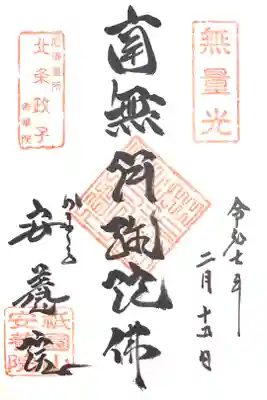 無量光
令和七年
二月十五日
南無阿弥陀佛
北条政子
安養院
かまくら
安養院
祇園山
安養院